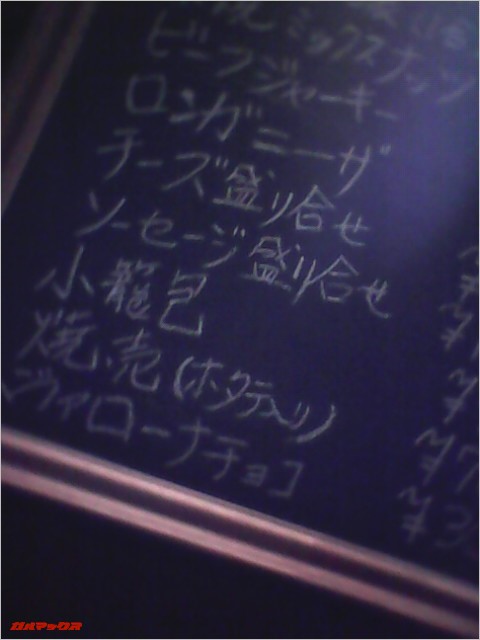 ミックスナッツ
ビーフジャーキー
ロンガニーザ
チーズ盛り合せ
ソーセージ盛り合せ
小籠包
焼売(ホタテ入り)
ヴァローナチョコ
ガルマックス